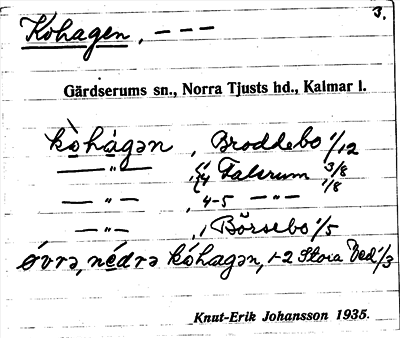 3.
Kohagen, — — —
Gärdserums sn., Norra Tjusts hd., Kalmar l.
kòhàgən, Broddebo 1/12
— " — , 1/4 Falsrum 3/8 1/8
— " — , 4-5 — " —
— " — , 1 Börsebo 1/5
óvrə, nédrə kóhagən, 1-2 Stora Bed 1/3
Knut-Erik Johansson 1935.